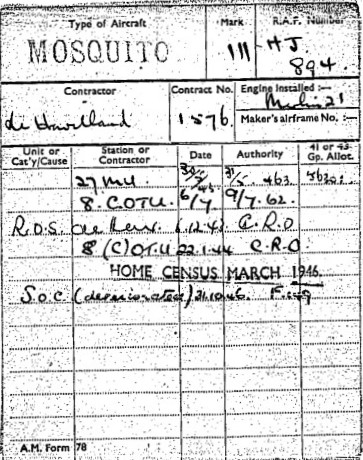 Type of Aircraft Mark R.A.F. Number
MOSQUITO 111 HJ
894.
Contractor Contract No. Engine Installed :—
Merlin 21
de Havilland 1576. Maker's airframe No. :—
Unit or Cat'y/Cause Station or Contractor Date Authority 41 or 43 Gp. Allot.
27 MU. 31/5 463.
8. COTU. 6/7 9/7. 62.
R.O.S. de Hav. 1.12.43 C.R.O
8 (C) OTU 22.1.44 C.R.O.
HOME CENSUS MARCH 1946.
S.o.C (deteriorated) 21.10.46
A.M. Form 78